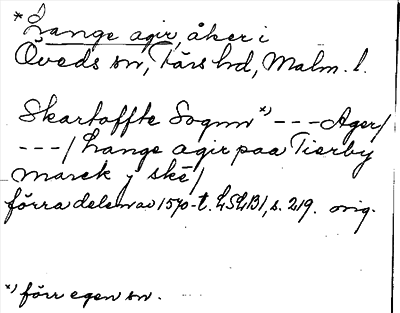 *Lange agir, åker i
Öveds sn, Färs hd, Malm. l.
Skartoffte Sognn *) - - - Ager/
- - - / Lange agir paa Tierby
marck y ske /
förra delen av 1570-t. LSLB1, s. 219. orig.
*) förr egen sn.